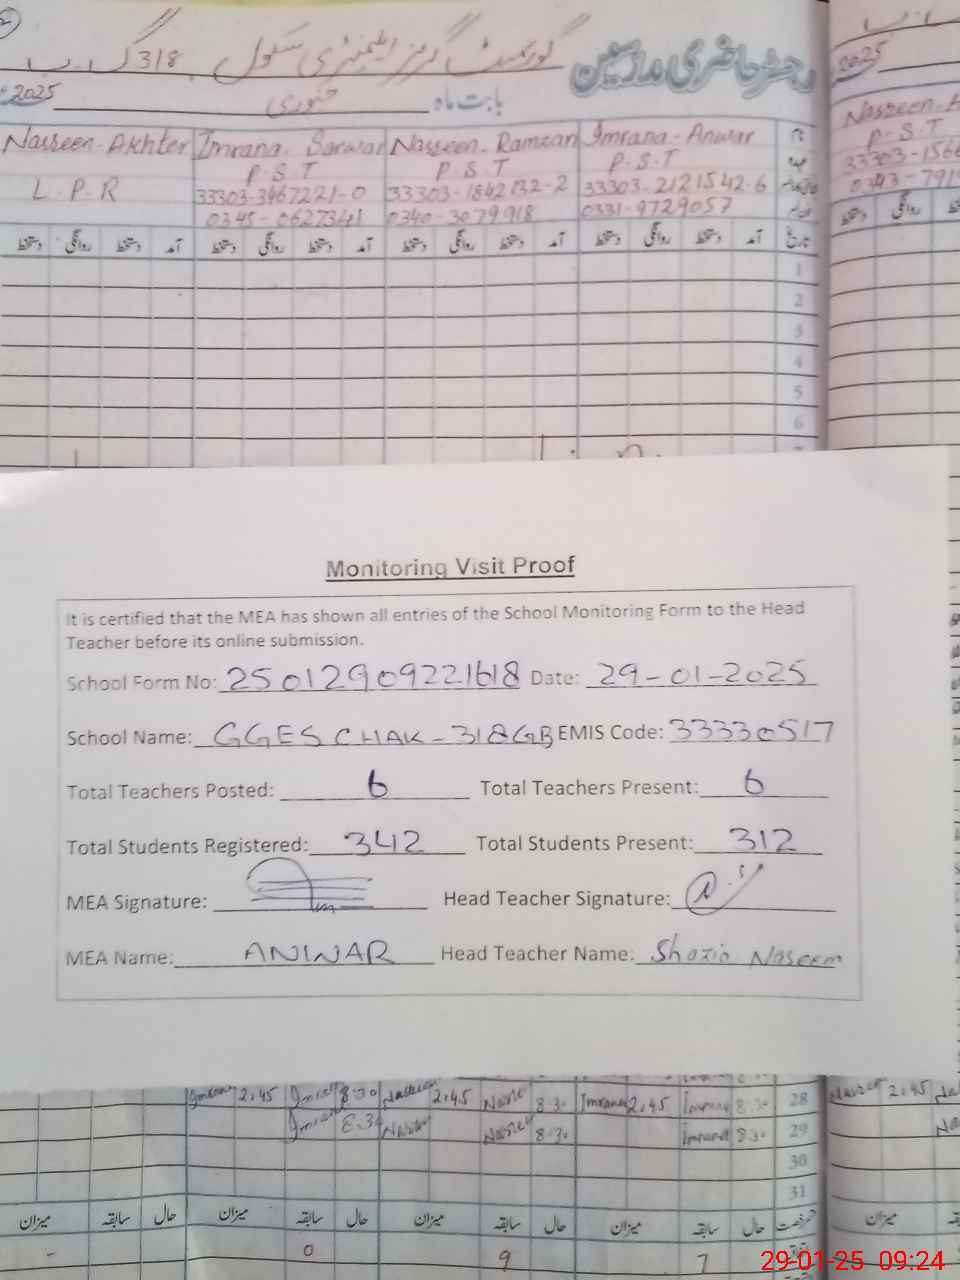 رجسٹر حاضری مدرسین گورنمنٹ گرلز ایلیمنٹری سکول 318 گ ب
بابت ماہ جنوری 2025
2025
Nasreen-Akhter Imrana-Sarwar Nasreen-Ramzan Imrana-Anwar نام
P.S.T P.S.T P.S.T عہدہ
L.P.R 33303-3467221-0 33303-1842132-2 33303-2121542-6
0345-0627341 0340-3079918 0331-9729057
Nasreen-A
P.S.T
33303-1566
0343-791
تاریخ آمد دستخط روانگی دستخط آمد دستخط روانگی دستخط آمد دستخط روانگی دستخط آمد دستخط روانگی دستخط
1
2
3
4
5
6
Monitoring Visit Proof
It is certified that the MEA has shown all entries of the School Monitoring Form to the Head
Teacher before its online submission.
School Form No: 25012909221618 Date: 29-01-2025
School Name: GGES CHAK-318GB EMIS Code: 33330517
Total Teachers Posted: 6 Total Teachers Present: 6
Total Students Registered: 342 Total Students Present: 312
MEA Signature: Head Teacher Signature:
MEA Name: ANWAR Head Teacher Name: Shazia Naseem
2.45 8.30 2.45 8.30 Imrana 2.45 Imrana 8.30 28 2.45
8.30 8.30 Imrana 8.30 29
30
31
میزان سابقہ حال میزان سابقہ حال میزان سابقہ حال میزان سابقہ حال میزان
- 0 9 7
29-01-25 09:24